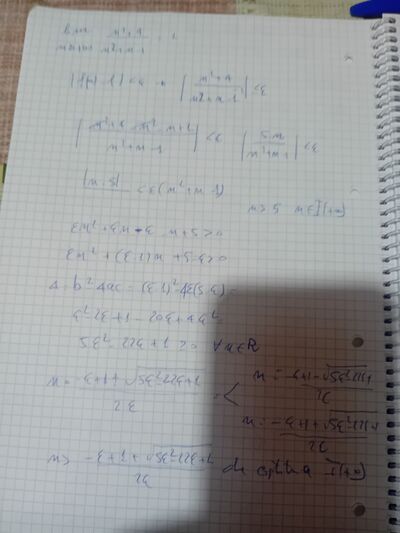 lim n²+4 / n²+n-1 = 1
n→+∞
|f(n)-1| < ε → |n²+4 / n²+n-1| < ε
|n²+4-n²-n+1 / n²+n-1| < ε |5-n / n²+n-1| < ε
|n-5| < ε(n²+n-1)
n > 5 n ∈ I(+∞)
εn²+εn-ε-n+5>0
εn²+(ε-1)n+5-ε>0
Δ = b²-4ac = (ε-1)²-4ε(5-ε) =
ε²-2ε+1-20ε+4ε²=
5ε²-22ε+1 > 0 ∀n∈R
n = -ε+1±√5ε²-22ε+1 / 2ε = < n = -ε+1-√5ε²-22ε+1 / 2ε
n = -ε+1+√5ε²-22ε+1 / 2ε
n > -ε+1+√5ε²-22ε+1 / 2ε I(+∞)